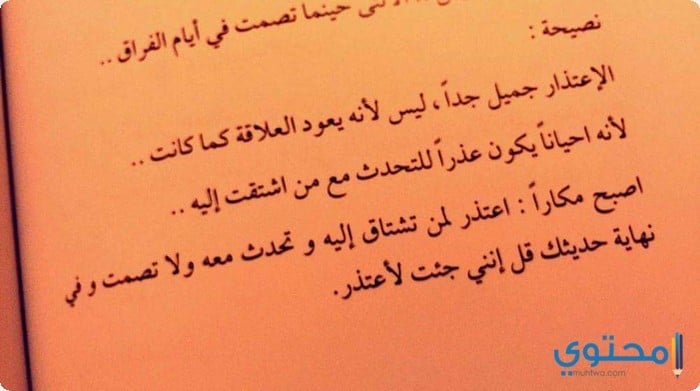 حينما تصمت في أيام الفراق ..
نصيحة :
الإعتذار جميل جداً ، ليس لأنه يعود العلاقة كما كانت ..
لأنه احياناً يكون عذراً للتحدث مع من اشتقت إليه ..
اصبح مكاراً : اعتذر لمن تشتاق إليه و تحدث معه ولا تصمت و في
نهاية حديثك قل إنني جئت لأعتذر.
محتوى
muhtwa.com